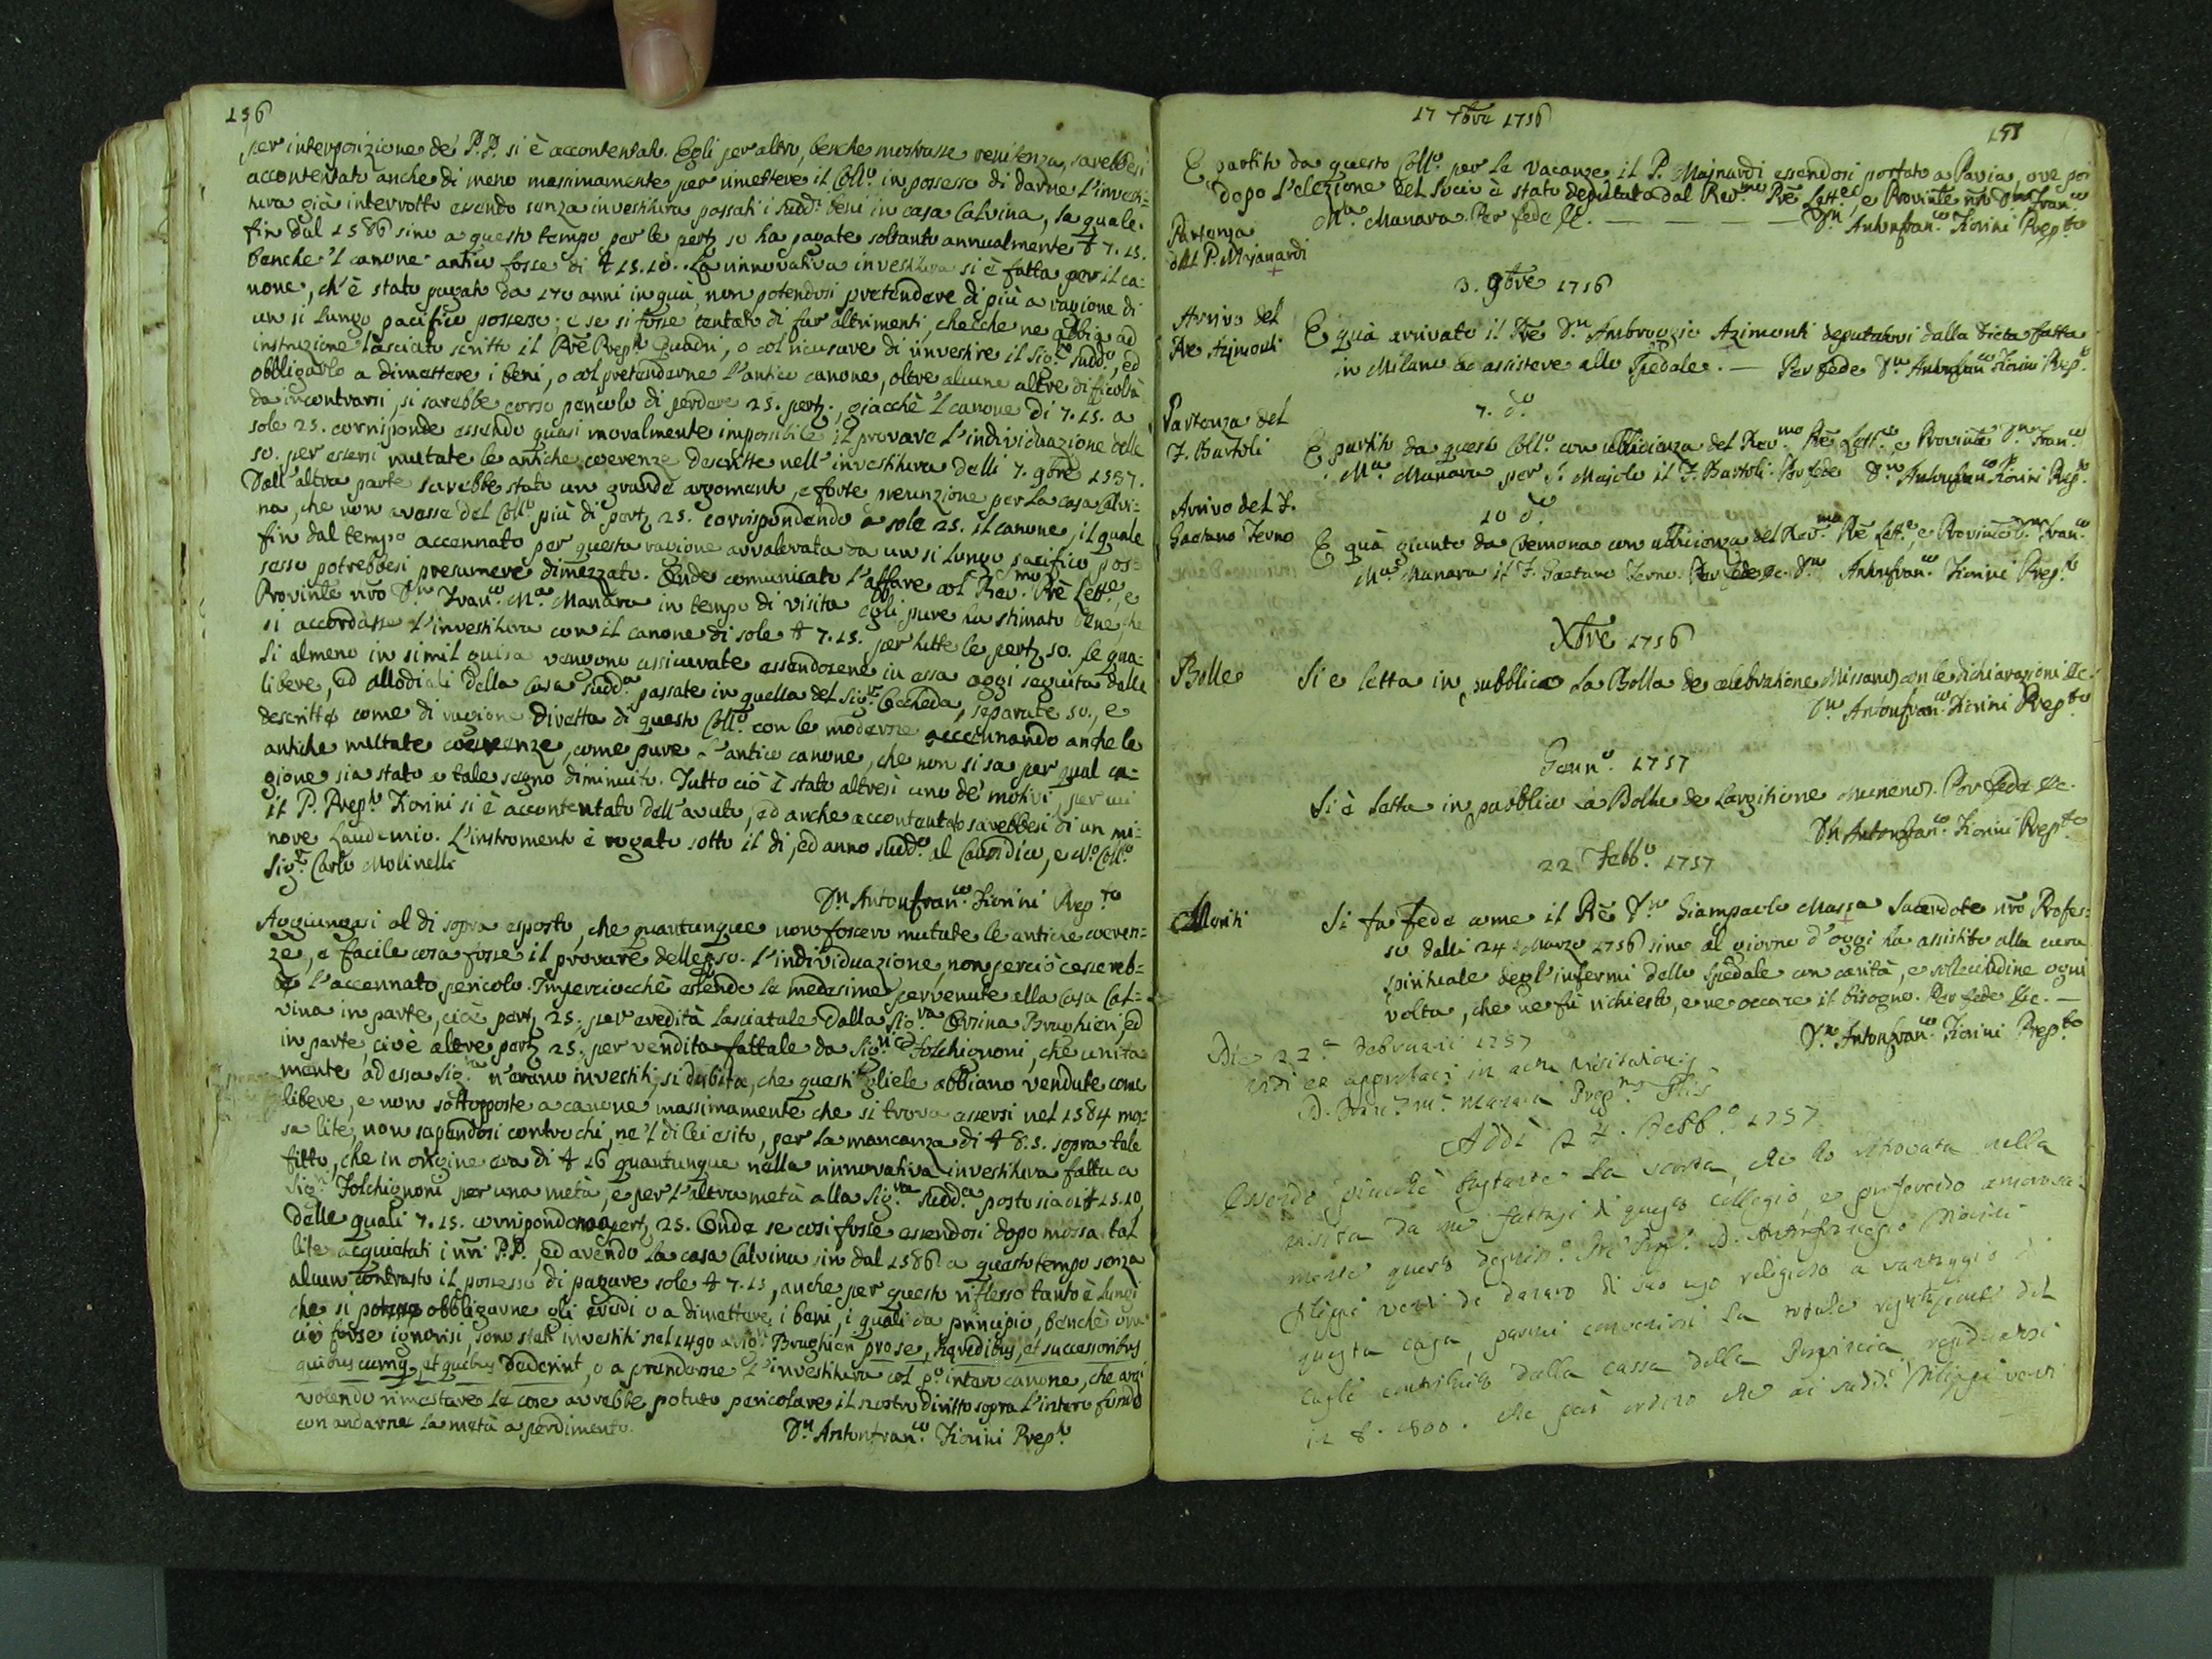 156
per interposizione de' P.P. si è accontentato. Egli per altro, benche mostrasse renitenza, sarebbesi
accontentato anche di meno massimamente per rimettere il Coll.º in possesso di darne l'investi=
tura già interrotto essendo senza investitura passati i sudd.i beni in casa Calvina, la quale
fin dal 1586 sino a questo tempo per le pert. 50 ha pagate soltanto annualmente £ 7.15.
benche 'l canone antico fosse di £ 15.10. La rinnovativa investitura si è fatta per il ca=
none, ch'è stato pagato da 170 anni in quà, non potendosi pretendere di più a ragione di
un si lungo pacifico possesso; e se si fosse tentato di far altrimenti, checche ne abbia ad
instruzione lasciato scritto il Prē Prep.to Quadri, o col ricusare di investire il Sig.r sudd.o, ed
obbligarlo a dimettere i beni, o col pretenderne l'antico canone, oltre alcune altre difficoltà
da incontrarsi, si sarebbe corso pericolo di perdere 25. pert., giacchè 'l canone di 7.15. a
sole 25. corrisponde essendo quasi moralmente impossibile il provare l'individuazione delle
50. per essersi mutate le antiche coerenze descritte nell'investitura delli 7. 9bre 1537.
Dall'altra parte sarebbe stato un grande argomento, e forte presunzione per la casa Calvi=
na, che non avesse del Coll.º più di pert. 25. corrispondendo a sole 25. il canone, il quale
fin dal tempo accennato per questa ragione avvalorata da un si lungo pacifico pos=
sesso potrebbesi presumere dimezzato. Onde comunicato l'affare col Rev.mo Prē Lett.e, e
Provinle nrō D.n Fran.co M.a Manara in tempo di visita egli pure ha stimato bene che
si accordasse l'investitura con il canone di sole £ 7.15. per tutte le pert. 50. le qua=
li almeno in simil guisa vengono assicurate essendosene in essa oggi seguita dalle
libere, ed allodiali della casa sudd.a passate in quella del Sig.r Ceccheda, separate 50., e
descritte come di ragione diretta di questo Coll.º con le moderne accennando anche le
antiche multate coerenze, come pure l'antico canone, che non si sa per qual ca=
gione sia stato a tale segno diminuito. Tutto ciò è stato altresì uno de' motivi, per cui
il P. Prep.to Fiorini si è accontentato dell'avuto, ed anche accontentato sarebbesi di un mi=
nore Laudemio. L'instromento è rogato sotto il di, ed anno sudd.o al Causidico, e N.o Coll.o
Sig.r Carlo Molinelli
D.n Antonfran.co Fiorini Prep.to
Aggiungasi al di sopra esposto, che quantunque non fossero mutate le antiche coeren=
ze, e facile cosa fosse il provare delle 50. l'individuazione, non perciò cesereb=
be l'accennato pericolo. Imperciocchè essendo le medesime pervenute alla Casa Cal=
vina in parte, cioè pert. 25. per eredità lasciatale dalla Sig.ra Orsina Brughieri, ed
in parte, cioè altre pert. 25. per vendita fattale da Sig.ri Folchignoni, che unita
mente ad essa Sig.ra n'erano investiti, si dubita, che questi gliele abbiano vendute come
libere, e non sottoposte a canone massimamente che si trova essersi nel 1584 mos=
sa lite, non sapendosi contro chi, ne 'l di lei esito, per la mancanza di £ 8.5. sopra tale
fitto, che in origine era di £ 16 quantunque nella rinnovativa investitura fatta a
Sig.ri Folchignoni per una metà, e per l'altra metà alla Sig.ra sudd.a posto sia di £ 15.10,
delle quali 7.15. corrispondono a pert. 25. Onde se così fosse essendosi dopo mossa tal
lite acquietati i nrī P.P., ed avendo la casa Calvina sin dal 1586 a questo tempo senza
alcun contrasto il possesso di pagare sole £ 7.15, anche per questo riflesso tanto è lungi
che si potesse obbligarne gli eredi o a dimettere i beni, i quali da principio, benchè ora
ciò forse ignorisi, sono stati investiti nel 1490 a Brughieri pro se, hæredibus, et successoribus
quibuscumq, et quibus dederint, o a prenderne l'investitura col p.o intero canone, che anzi
volendo rimestare le cose avrebbe potuto pericolare il nostro diritto sopra l'intero fondo
con andarne la metà a perdimento.
D.n Antonfran.co Fiorini Prep.to
17 7bre 1756
157
E partito da questo Coll.º per le vacanze il P. Majnardi essendosi portato a Pavia, ove poi
dopo l'elezione del Socio è stato deputato dal Rev.mo Prē Lett.e, e Provinle nrō D.n Fran.co
M.a Manara. Per fede &c. — D.n Antonfran.co Fiorini Prep.to
Partenza
del P. Majnardi
3. 9bre 1756
Arrivo del
Prē Azimonti
E quà arrivato il Prē D.n Ambroggio Azimonti deputatovi dalla Dieta fatta
in Milano ad assistere allo Spedale. — Per fede D.n Antonfran.co Fiorini Prep.to
7. d.o
Partenza del
F. Bartoli
E partito da questo Coll.º con ubbidienza del Rev.mo Prē Lett.e, e Provinle D.n Fran.co
M.a Manara per S. Majolo il F. Bartoli. Per fede D.n Antonfran.co Fiorini Prep.to
10 d.o
Arrivo del F.
Gaetano Ferno
E quà giunto da Cremona con ubbidienza del Rev.mo Prē Lett.e, e Provinle D.n Fran.co
M.a Manara il F. Gaetano Ferno. Per fede &c. D.n Antonfran.co Fiorini Prep.to
Xbre 1756
Bolle
Si e letta in pubblico la Bolla de celebratione Missarū con le dichiarazioni &c.
D.n Antonfran.co Fiorini Prep.to
Genn.o 1757
Si è letta in pubblico la Bolla de largitione munerū. Per fede &c.
D.n Antonfran.co Fiorini Prep.to
22 Febb.o 1757
Meriti
Si fa fede come il Prē D.n Giampaolo Massa Sacerdote nrō Profes=
so dalli 24 Marzo 1756 sino al giorno d'oggi ha assistito alla cura
spirituale degl'infermi dello Spedale con carità, e sollecitudine ogni
volta, che ne fù richiesto, e ne occorre il bisogno. Per fede &c. —
D.n Antonfran.co Fiorini Prep.to
Die 22.a Februarii 1757
vidi et approbavi in actu visitationis
D. Fran.s M.a Manara Prep.tus Plis
Addì 24. Febb.o 1757
Essendo piucchè bastante la scorta, che ho ritrovata nella
visita da me fattasi di questo collegio, e proferendo amorosa=
mente questo degniss.o Prē Prep.to D. Antonfrancesco Fiorini
Filippi venti di danaro di suo uso religioso a vantaggio di
questa casa, parmi convenirsi la totale del
contribuito dalla cassa della Provincia
in £. 800. che però ordino che ai sudd.i Filippi venti